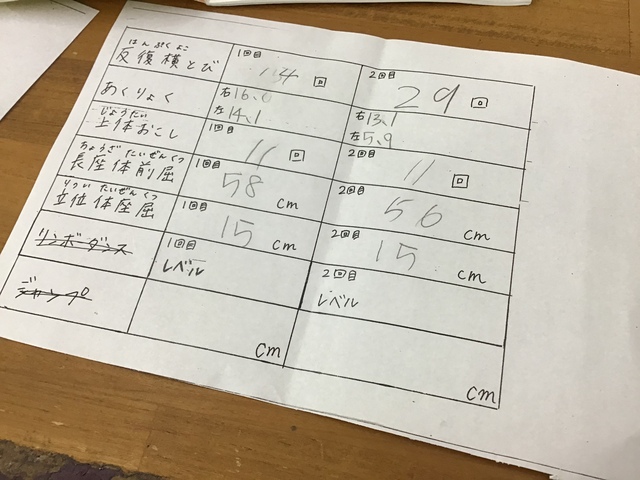 はんぷくよこ
反復横とび
1回目
14 回
2回目
29 回
あくりょく
右16.0
左14.1
右13.1
左5.9
じょうたい
上体おこし
1回目
11 回
2回目
11 回
ちょうざたいぜんくつ
長座体前屈
1回目
58 cm
2回目
56 cm
りついたいぜんくつ
立位体座屈
1回目
15 cm
2回目
15 cm
リンボーダンス
1回目
レベル
2回目
レベル
ジャンプ
cm
cm